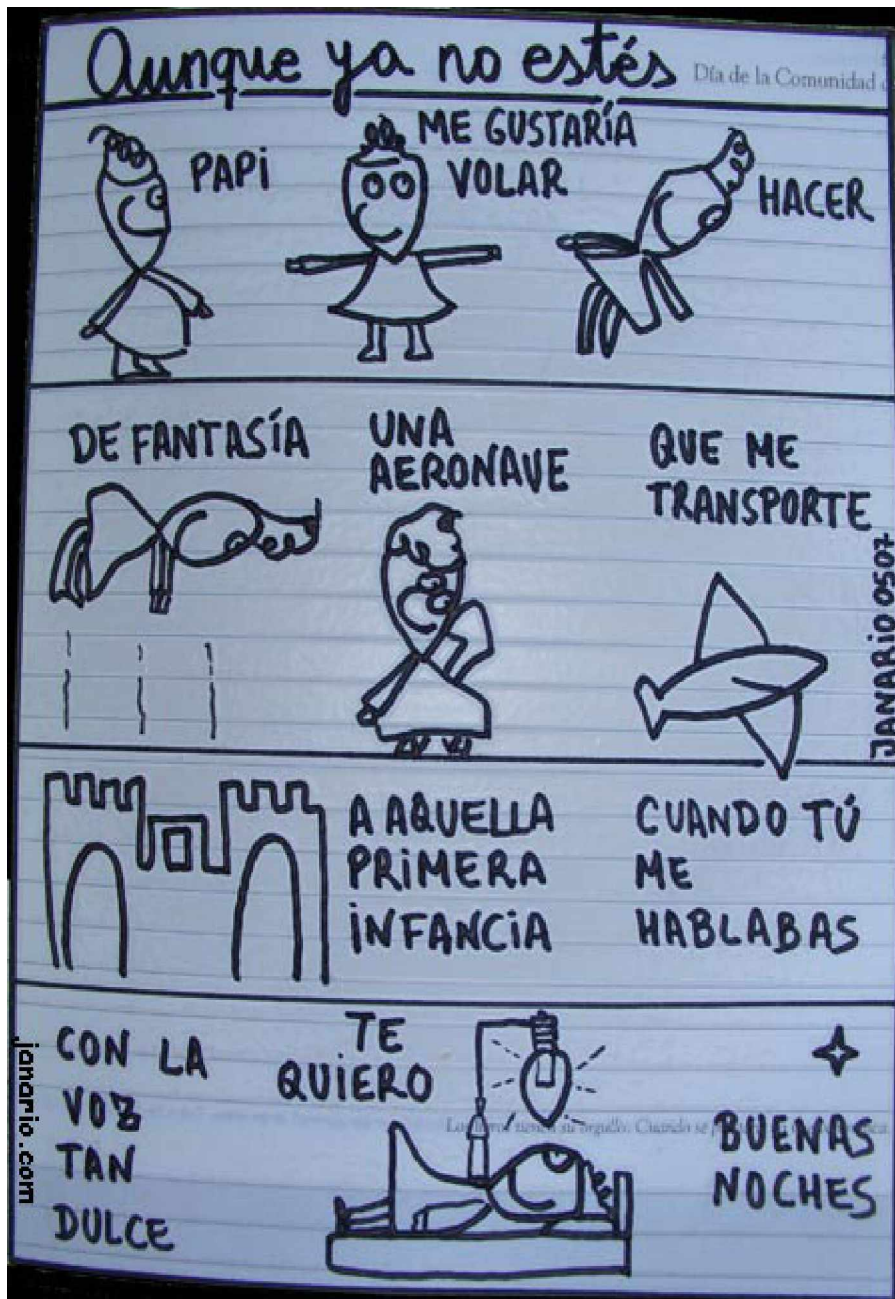 Aunque ya no estés
Día de la Comunidad
PAPI
ME GUSTARÍA
VOLAR
HACER
DE FANTASÍA
UNA
AERONAVE
QUE ME
TRANSPORTE
JANARIO 0507
A AQUELLA
PRIMERA
INFANCIA
CUANDO TÚ
ME
HABLABAS
CON LA
VOZ
TAN
DULCE
TE
QUIERO
Los libros tienen su orgullo. Cuando se
BUENAS
NOCHES
janario.com